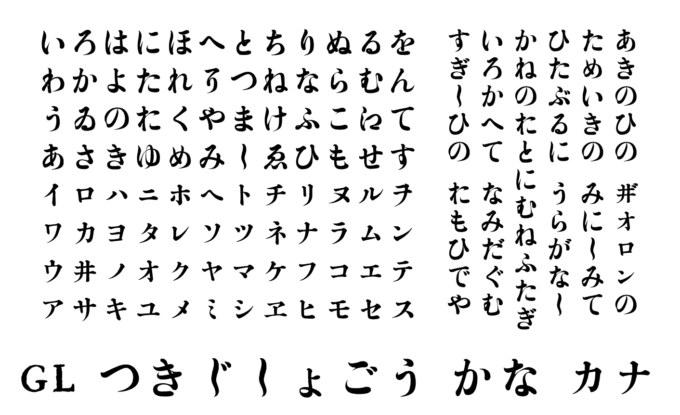 いろはにほへとちりぬるを
わかよたれそつねならむん
うゐのおくやまけふこえて
あさきゆめみしゑひもせす
イロハニホヘトチリヌルヲ
ワカヨタレソツネナラムン
ウ井ノオクヤマケフコエテ
アサキユメミシヱヒモセス
あきのひの ヸオロンの
ためいきの みにしみて
ひたぶるに うらがなし
かねのおとにむねふたぎ
いろかへて なみだぐむ
すぎしひの おもひでや
GL つきじしょごう かな カナ